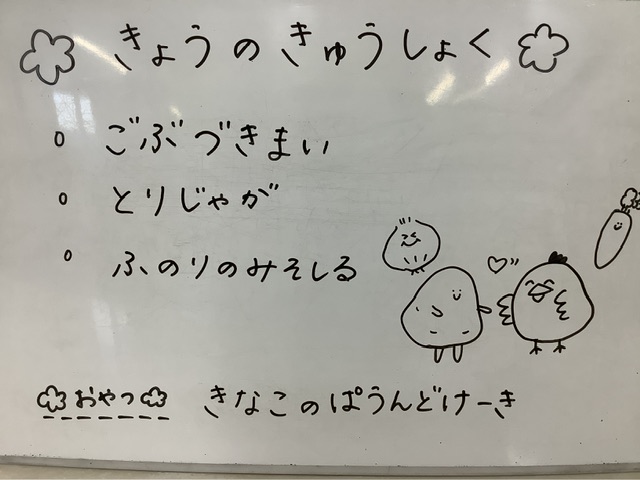 きょうのきゅうしょく
ごぶづきまい
とりじゃが
ふのりのみそしる
おやつ きなこのぱうんどけーき